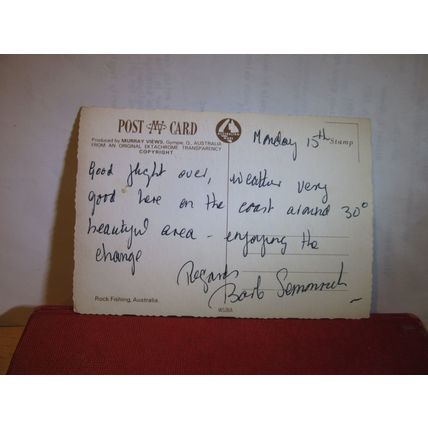 POST CARD
Produced by MURRAY VIEWS, Gympie, Q., AUSTRALIA
FROM AN ORIGINAL EKTACHROME TRANSPARENCY
COPYRIGHT
Monday 15th
Stamp
Good flight over, weather very
good here on the coast around 30°
beautiful area - enjoying the
change
Regards
Barb
Rock Fishing, Australia.